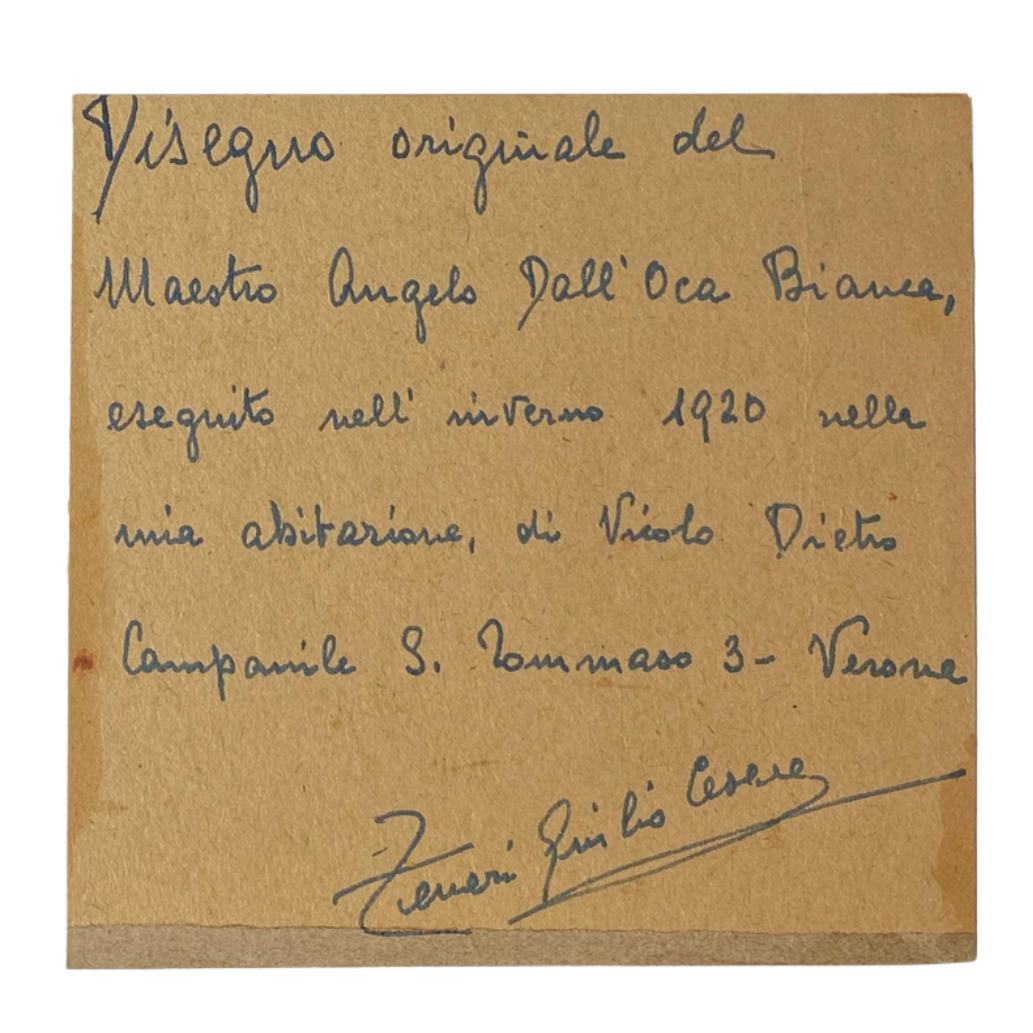 Disegno originale del
Maestro Angelo Dall'Oca Bianca,
eseguito nell'inverno 1920 nella
mia abitazione, di Vicolo Dietro
Campanile S. Tommaso 3 - Verona
Giulio Cesare